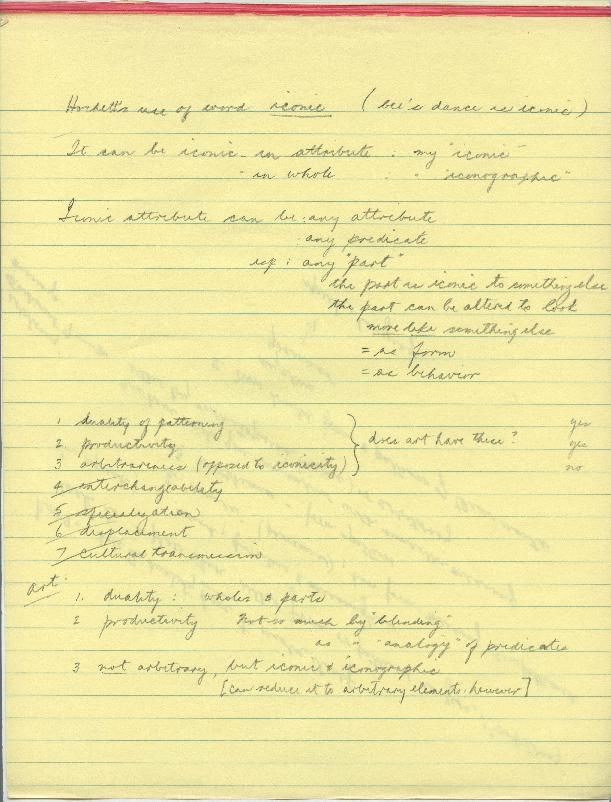 Hockett's use of word iconic (bee's dance is iconic)
It can be iconic - in attribute : my "iconic"
" in whole : " "iconographic"
Iconic attribute can be : any attribute
: any predicate
esp : any "part"
the part is iconic to something else
the part can be altered to look
more like something else
= as form
= as behavior
1 duality of patterning yes
2. productivity } does art have these? yes
3 arbitrariness (opposed to iconicity) no
4 interchangeability
5 specialization
6 displacement
7 cultural transmission
art
1. duality : wholes & parts
2 productivity Not so much by "blending"
as " "analogy" of predicates
3 not arbitrary, but iconic & iconographic
[can reduce it to arbitrary elements, however]